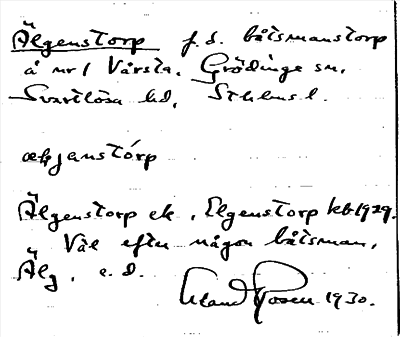 Älgenstorp f.d. båtsmanstorp
å nr 1 Vårsta, Grödinge sn,
Svartlösa hd, Sthlms l.
älgjenstórp
Älgenstorp ek, Elgenstorp kb 1929.
Väl efter någon båtsman,
Älg, e.d.
Rosen 1930.